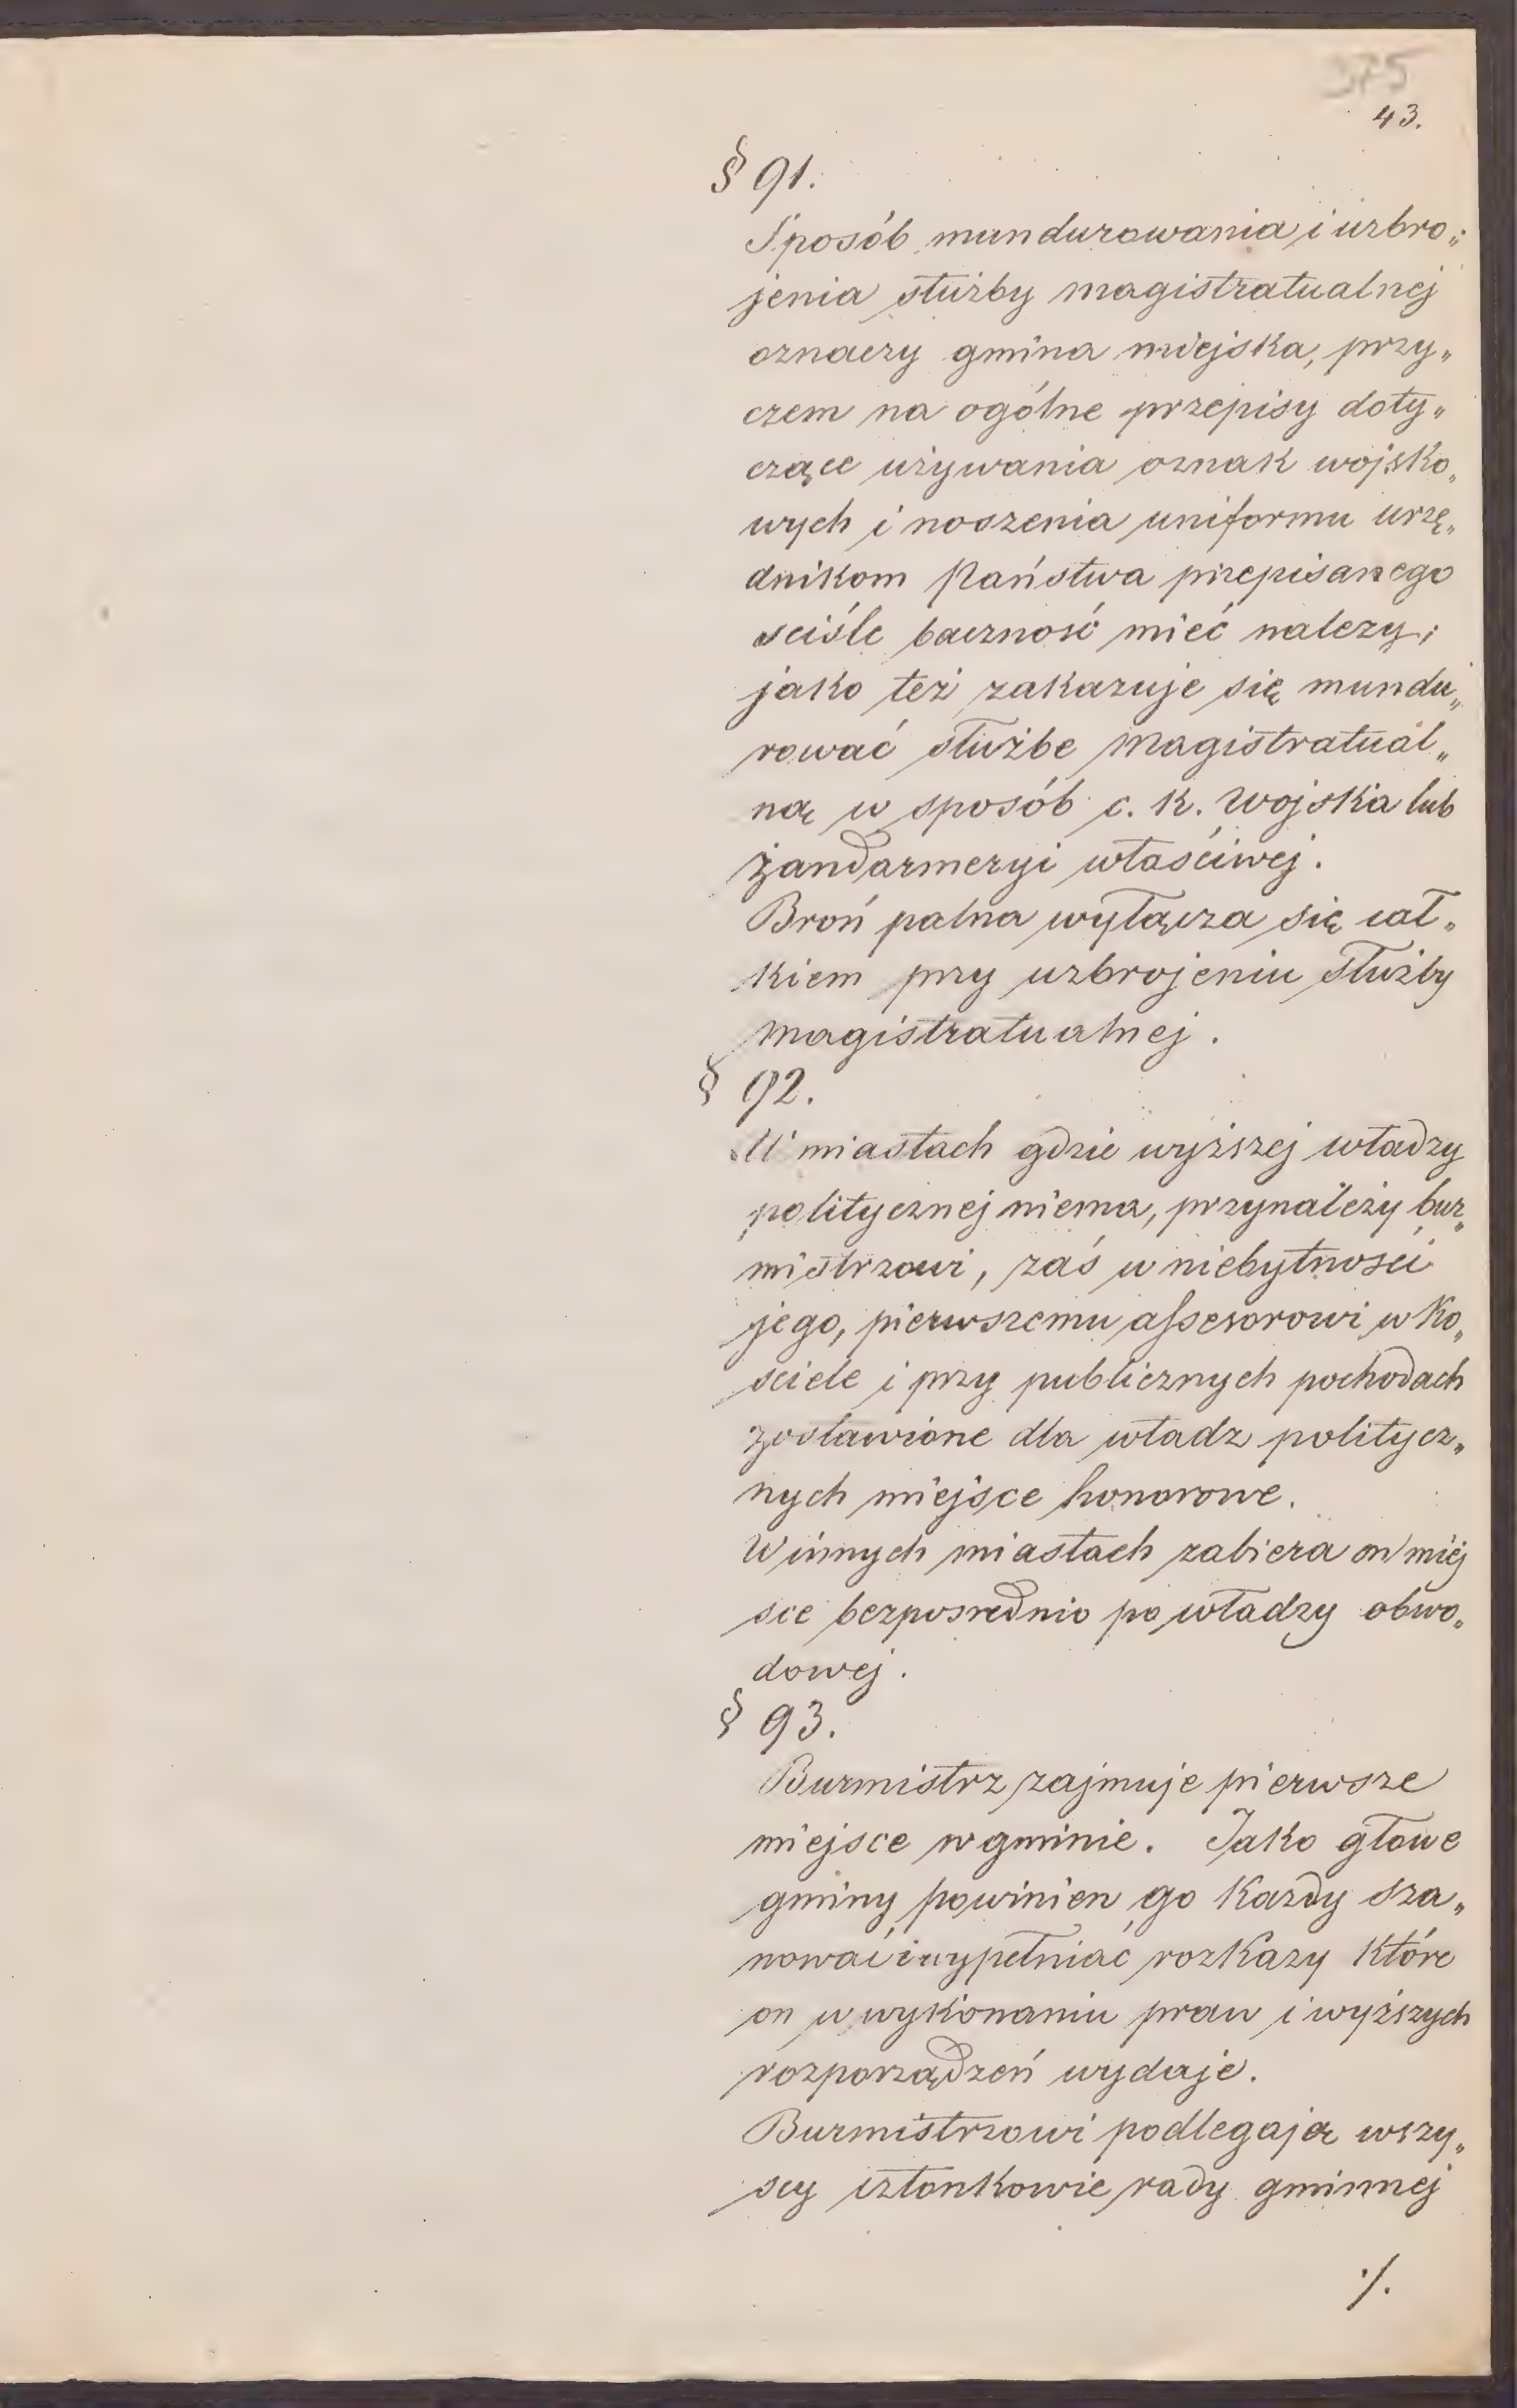 375
43.
§ 91.
Sposób mundurowania i uzbro„
jenia służby magistratualnej
oznaczy gmina miejska, przy„
czem na ogólne przepisy doty„
czące używania oznak wojsko„
wych i noszenia uniformu urzę„
dnikom Państwa przepisanego
sciśle baczność mieć nalezy;
jako też zakazuje się mundu„
rować służbe magistratual„
ną w sposób c. k. Wojska lub
żandarmeryi właściwej.
Broń palna wyłącza się cał„
kiem przy uzbrojeniu służby
magistratualnej.
§ 92.
W miastach gdzie wyższej władzy
politycznej niema, przynależy bur„
mistrzowi, zaś w niebytności
jego, pierwszemu assesorowi w Ko„
sciele i przy publicznych pochodach
zostawione dla władz politycz„
nych miejsce honorowe.
W innych miastach zabiera on miej
sce bezposrednio po władzy obwo„
dowej.
§ 93.
Burmistrz zajmuje pierwsze
miejsce w gminie. Jako głowe
gminy powinien go Każdy sza„
nować i wypełniać rozkazy które
on w wykonaniu praw i wyższych
rozporządzeń wydaje.
Burmistrzowi podlegają wszy„
scy członkowie rady gminnej
·/.